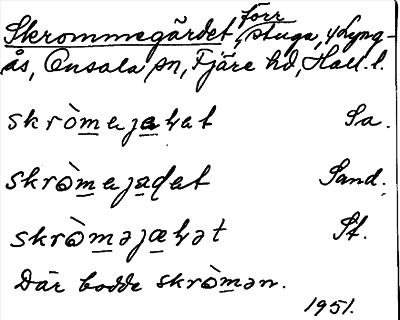 Skrommegärdet, förr stuga, y Lyng-
ås, Onsala sn, Fjäre hd, Hall. l.
skròmejaḷat Sa.
skròmejaḍet Sand.
skròməjæḷət St.
Där bodde skròmən.
1951.